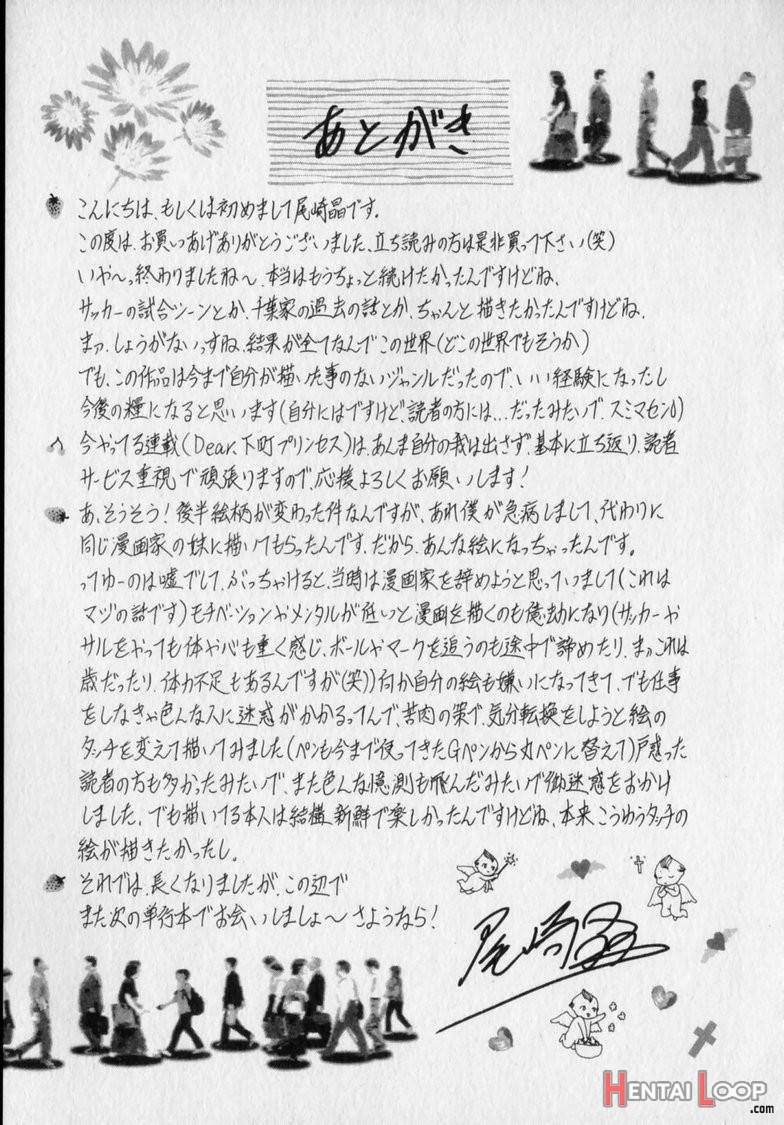 あとがき
こんにちは、もしくは初めまして尾崎晶です。
この度は、お買いあげありがとうございました、立ち読みの方は是非買って下さい(笑)
いや〜っ終わりましたね〜、本当はもうちょっと続けたかったんですけどね、
サッカーの試合シーンとか、千葉家の過去の話とか、ちゃんと描きたかったんですけどね、
まァ、しょうがないっすね、結果が全てなんでこの世界(どこの世界でもそうか)
でも、この作品は今まで自分が描いた事のないジャンルだったので、いい経験になったし
今後の糧になると思います(自分にはですけど、読者の方には…だったみたいで、スミマセン)
今やってる連載(Dear、下町プリンセス)は、あんま自分の我は出さず、基本に立ち返り、読者
サービス重視で頑張りますので、応援よろしくお願いします!
あ、そうそう!後半絵柄が変わった件なんですが、あれ僕が急病しまして、代わりに
同じ漫画家の妹に描いてもらったんです、だから、あんな絵になっちゃったんです。
ってゆーのは嘘でして、ぶっちゃけると、当時は漫画家を辞めようと思っていまして(これは
マヅの話です)モチベーションやメンタルが低いと漫画を描くのも億劫になり(サッカーや
サルをやっても体や心も重く感じ、ボールやマークを追うのも途中で諦めたり、まァこれは
歳だったり、体力不足もあるんですが(笑))何か自分の絵も嫌いになってきて、でも仕事
をしなきゃ色んな人に迷惑がかかるってんで、苦肉の策で、気分転換をしようと絵の
タッチを変えて描いてみました(ペンも今まで使ってきたGペンから丸ペンに替えて)戸惑った
読者の方も多かったみたいで、また色んな憶測も飛んだみたいで御迷惑をおかけ
しました、でも描いてる本人は結構、新鮮で楽しかったんですけどね、本来こうゆうタッチの
絵が描きたかったし。
それでは、長くなりましたが、この辺で
また次の単行本でお会いしましょ〜さようなら!
尾崎晶
HENTAI LOOP
.com